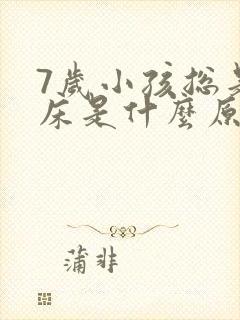 7歲小孩總是
床是什麼原
蒲非